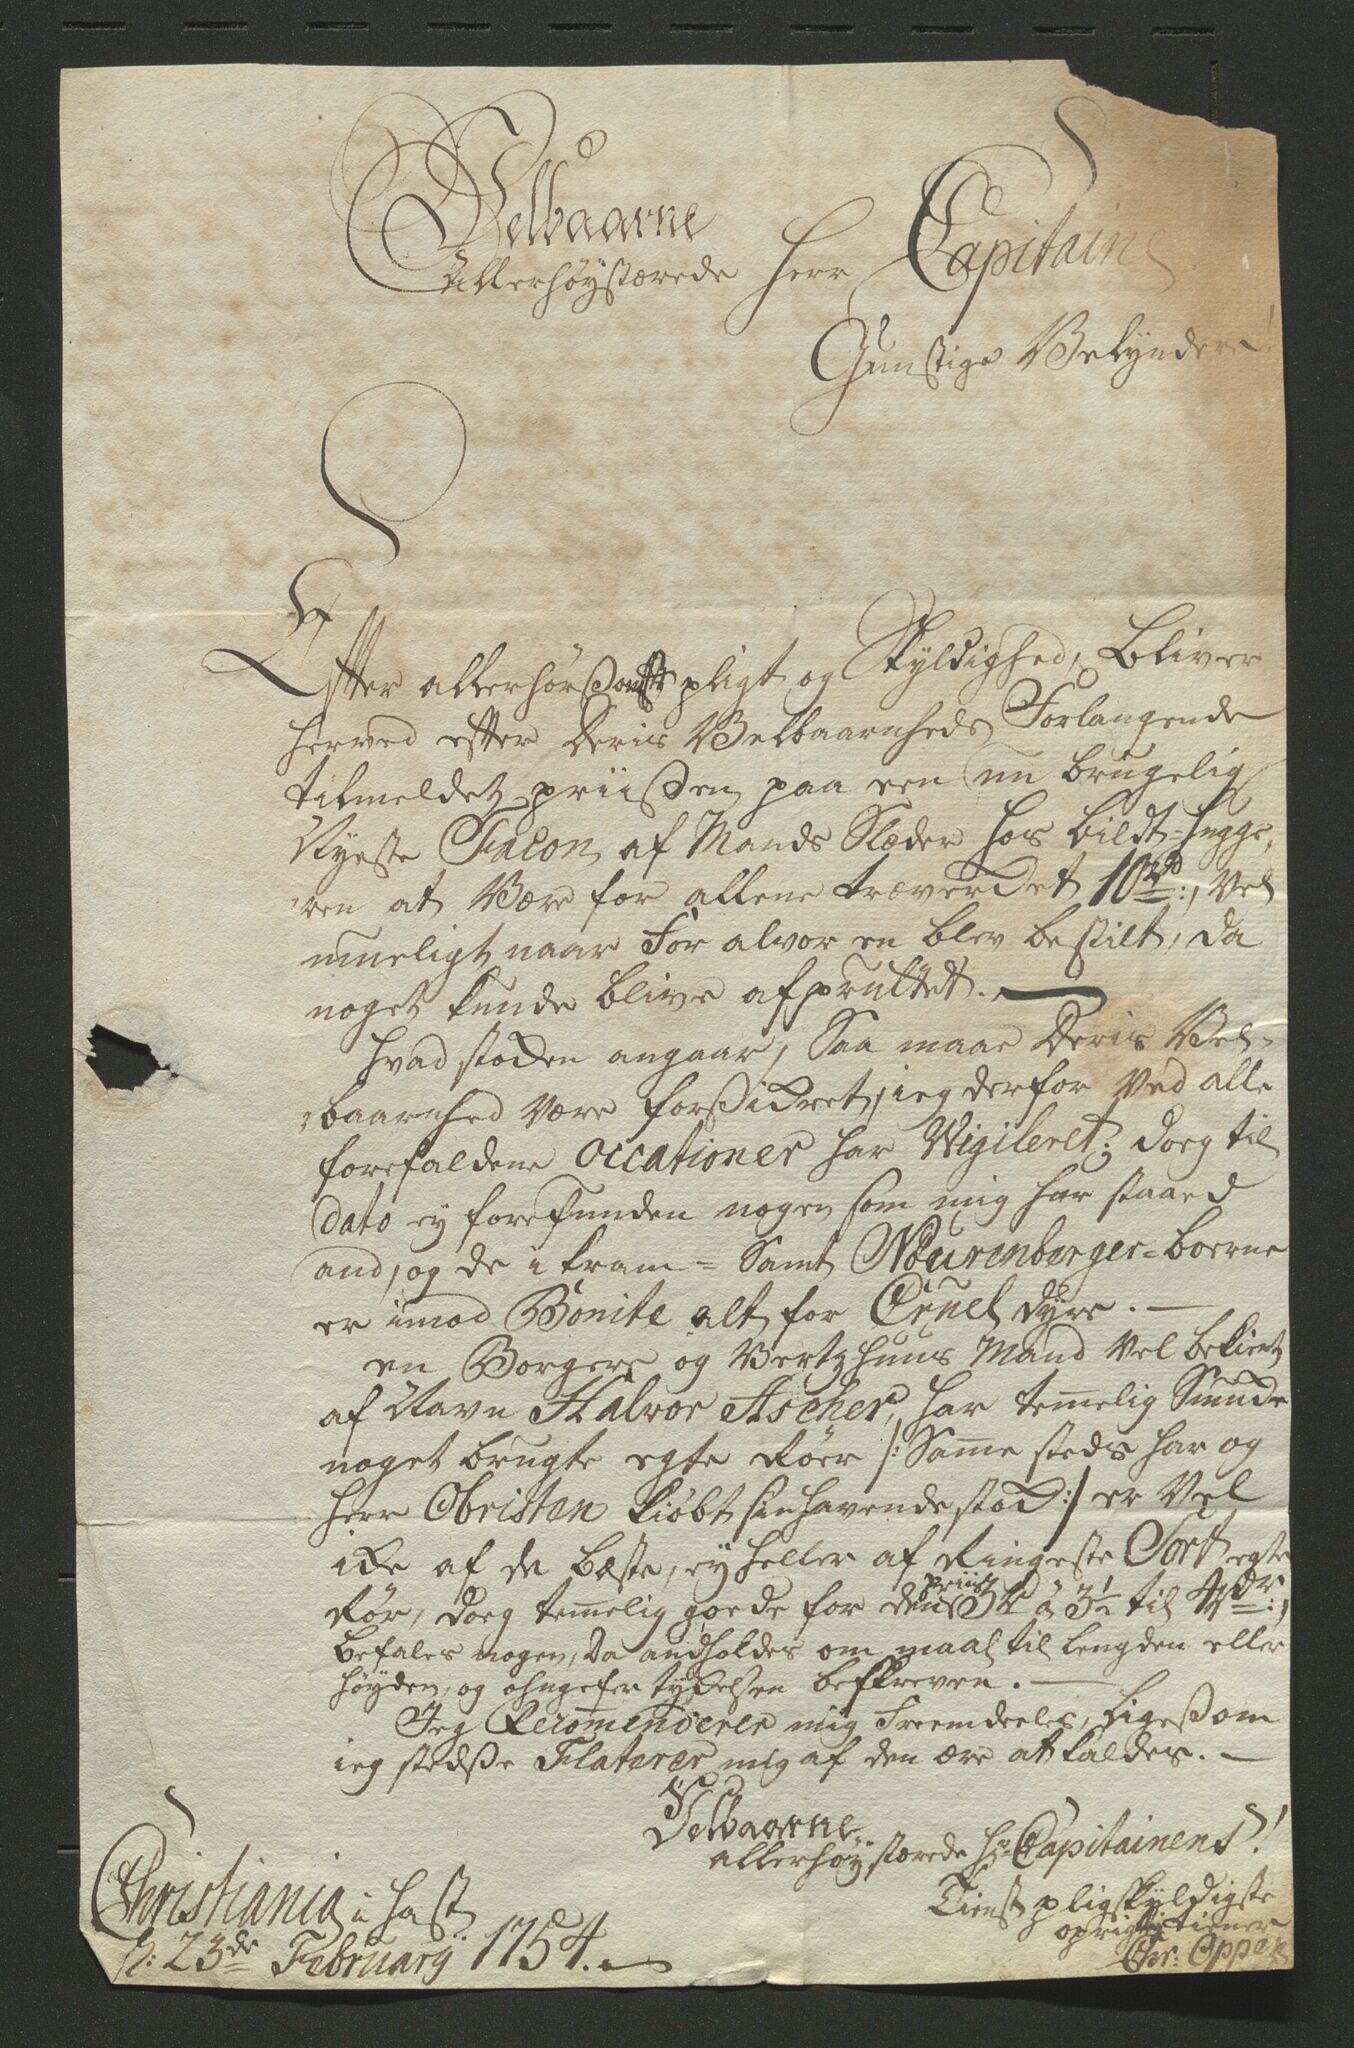 Velbaarne
Allerhøystærede Herr Capitain
Gunstige Velyndere!
Efter allerhørsomste pligt og Skyldighed, bliver
herved efter Deris Velbaarnheds Forlangende
tilmeldet, priisen paa een nu brugelig
Nyeste Facon af Mands Slæder hos bildt-hugge,
ren at være for allene træverdet 10 rd:, Vel
mueligt naar For alvor en blev bestilt, da
noget kunde blive afpruttet.
Hvad stocken angaar, Saa maae Deris Vel-
baarnhed være forsickret, ieg derfor ved alle
forefaldene Occationer har Vigileret; doeg til
dato ey forefunden nogen som mig har staaed
and, og de i kram- Samt Nøurenberger-boerne
er imod Bonite alt for Cruel dyre.
en Borger og Vertzhuus Mand vel bekient
af Navn Halvor Ascher, har temelig Smucke
noget brugte egte Røer /: Same steds har og
Herr Obristen kiøbt sin havende stock :/ er vel
icke af de bæste, ey heller af Ringeste Sort egte
Rør, doeg temelig goede for den priis à 3½ til 4 dr:,
befales nogen, da andholdes om maal til lengden eller
høyden, og ohngefer tyckelsen beskreven.
Jeg Recomenderer mig Freemdeeles, ligesom
ieg stedse Flaterer mig af den ære at kaldes.
Velbaarne
allerhøystærede Hr Capitainens!
Tienst pligskyldigste
oprigtig tiener
Chr: Oppen
Christiania i hast
d: 23de February 1754.